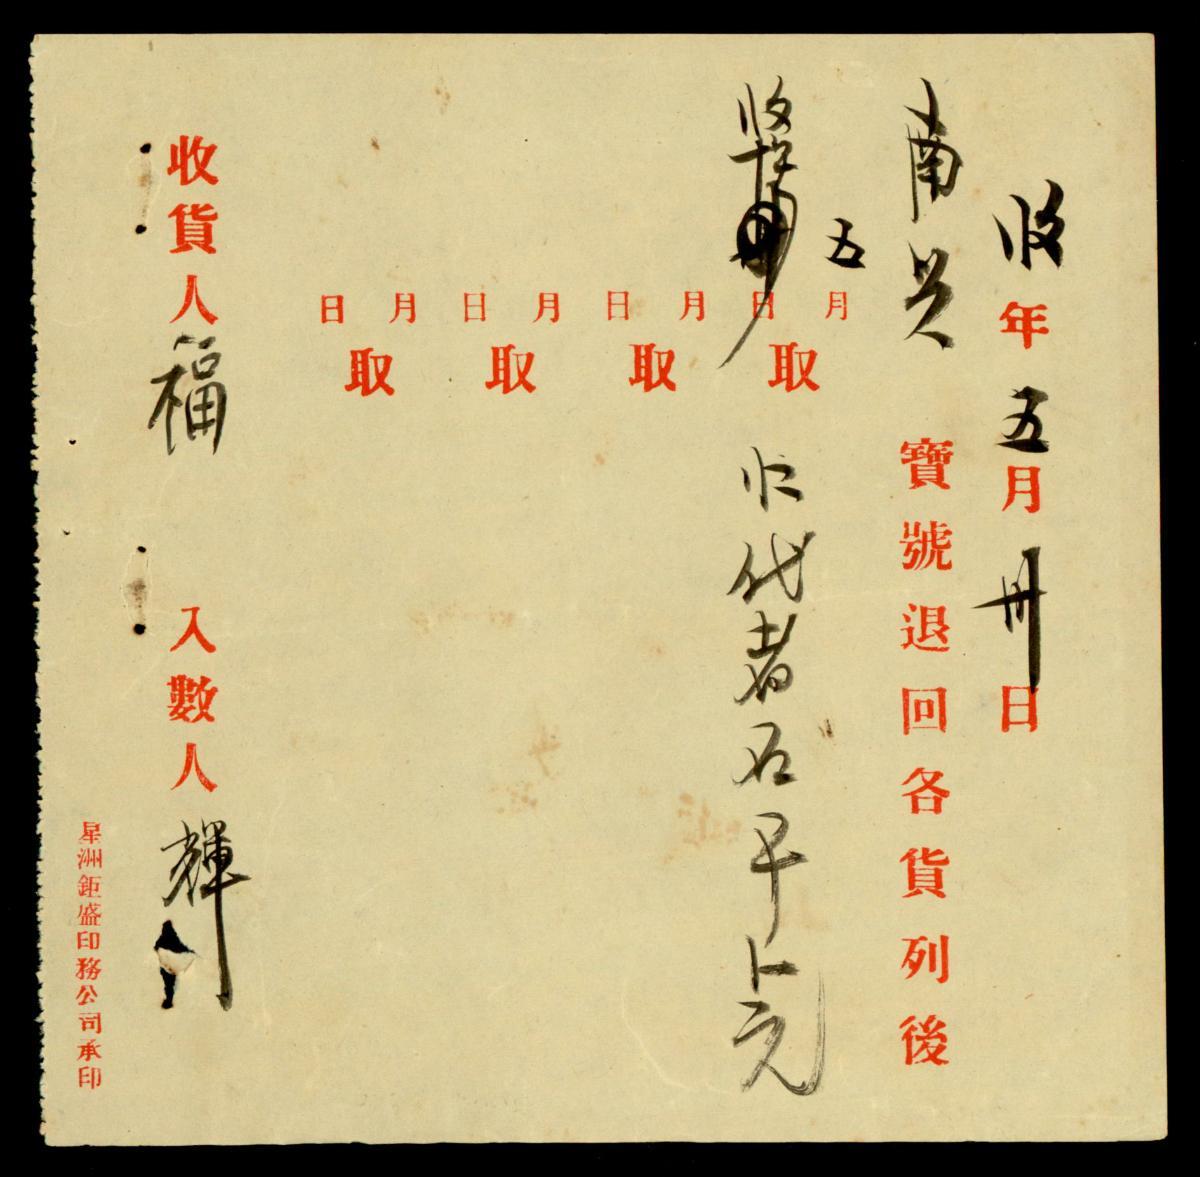 收年五月卅日
南
寶號退回各貨列後
五月日取
收代者石平
月日取
月日取
月日取
收貨人福 入數人輝
星洲鉅盛印務公司承印